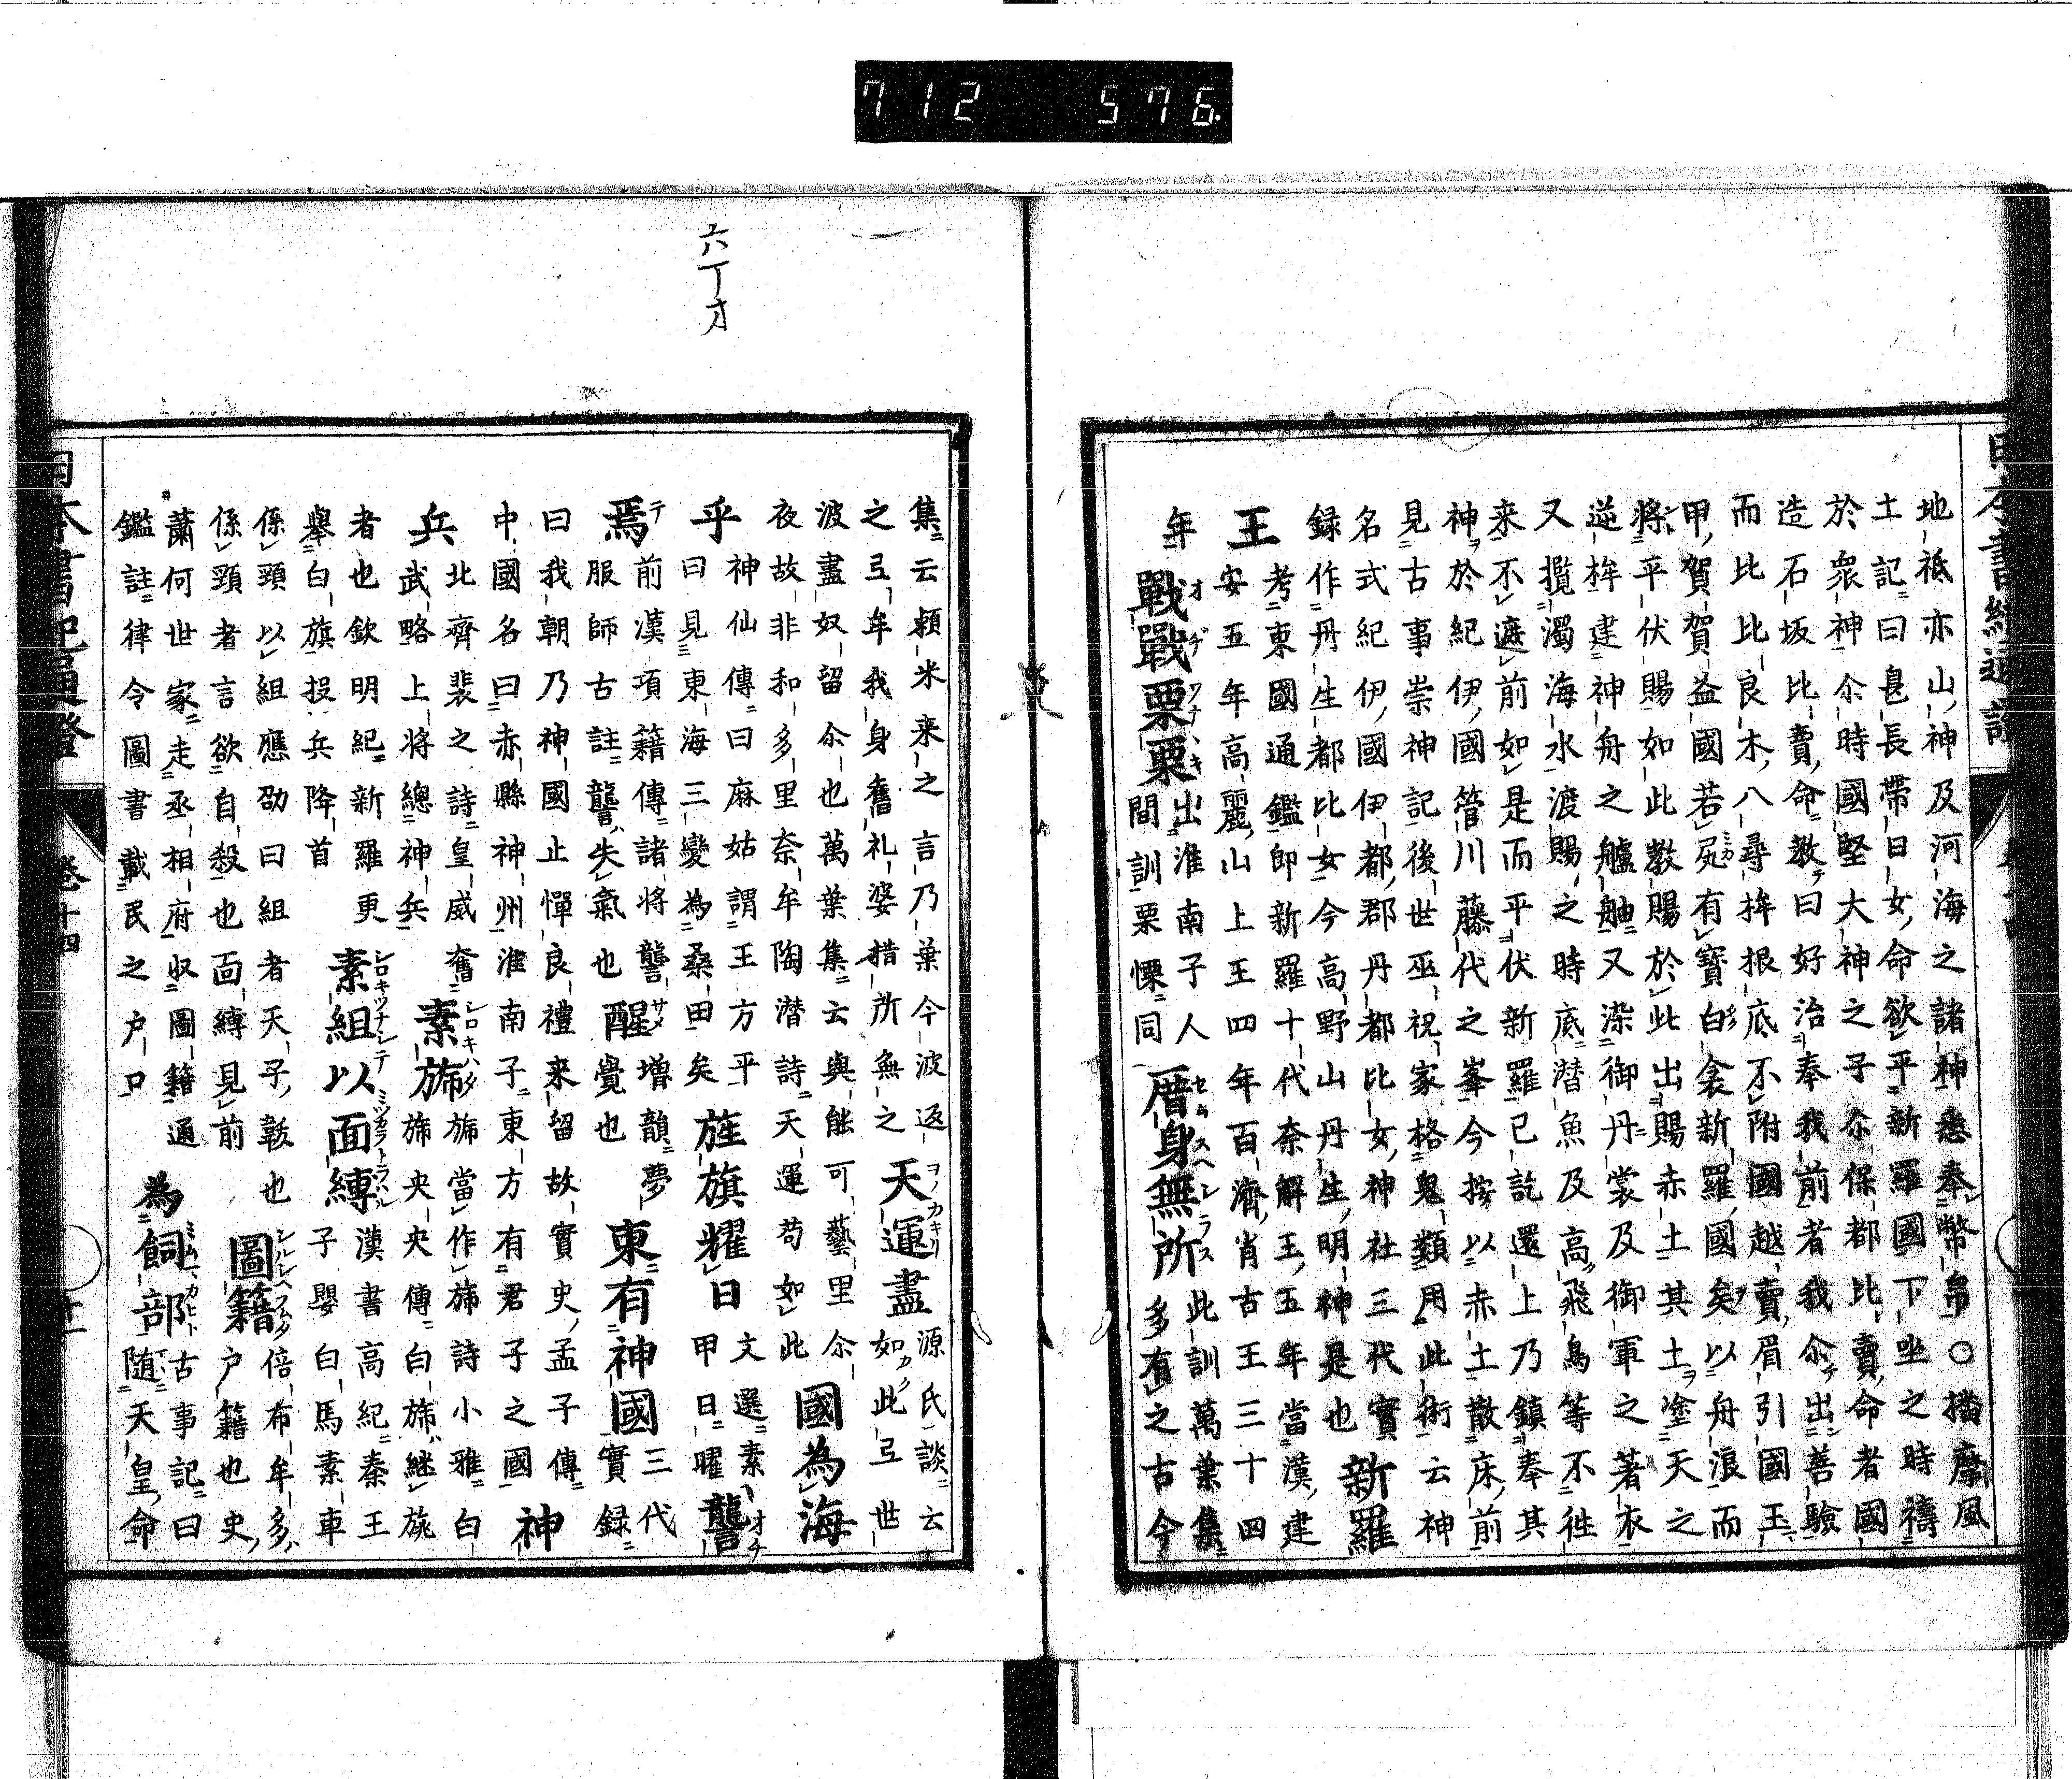 地祇亦山神及河海之諸神悉奉幣帛○播磨風
土記曰息長帶日女命欲平新羅國下坐之時禱
於衆神尒時國堅大神之子尒保都比賣命者國
造石坂比賣命教曰好治奉我前者我尒出善驗
而比比良木八尋桙根底不附國越賣眉引國玉
甲賀賀益國若尻有寶白衾新羅國矣以舟浪而
將平伏賜如此教賜於此出賜赤土其土塗天之
逆桙建神舟之艫舳又染御丹裳及御軍之著衣
又攬濁海水渡賜之時底潜魚及高飛鳥等不徃
来不遮前如是而平伏新羅已訖還上乃鎮奉其
神於紀伊國管川藤代之峯今按以赤土散床前
見古事崇神記後世巫祝家格鬼類用此術云神
名式紀伊國伊都郡丹都比女神社三代實
録作丹生都比女今高野山丹生明神是也 新羅
王 考東國通鑑即新羅十代奈解王五年當漢建
安五年高麗山上王四年百濟肖古王三十四
年 戰戰栗栗 出淮南子人間訓栗慄同 厝身無所 此訓萬葉集多有之古今
六丁オ
集云頼米来之言乃葉今波返之弖牟我身舊礼婆措所無之 天運盡 源氏談云如此弖世
波盡奴留尒也萬葉集云與能可藝里尒夜故非和多里奈牟陶潜詩天運苟如此 國為海
乎 神仙傳曰麻姑謂王方平曰見東海三變為桑田矣 旌旗耀日 文選素甲日曜 讋
焉 前漢項籍傳諸将讋服師古註讋失氣也 醒 增韻夢覺也 東有神國 三代實録
曰我朝乃神國止憚良禮来留故實史孟子傳中國名曰赤縣神州淮南子東方有君子之國 神
兵 北齊裴之詩皇威奮武略上将總神兵 素旆 旆當作旆詩小雅白旆央央傳白旆継旐
者也欽明紀新羅更舉白旗投兵降首 素組以面縛 漢書高紀秦王子嬰白馬素車
係頸以組應劭曰組者天子韍也係頸者言欲自殺也面縛見前 圖籍 倍布牟多户籍也史
蕭何世家走丞相府収圖籍通鑑註律令圖書載民之户口 為飼部 古事記曰随天皇命
日本書紀通證 卷十四 廿一
712 576